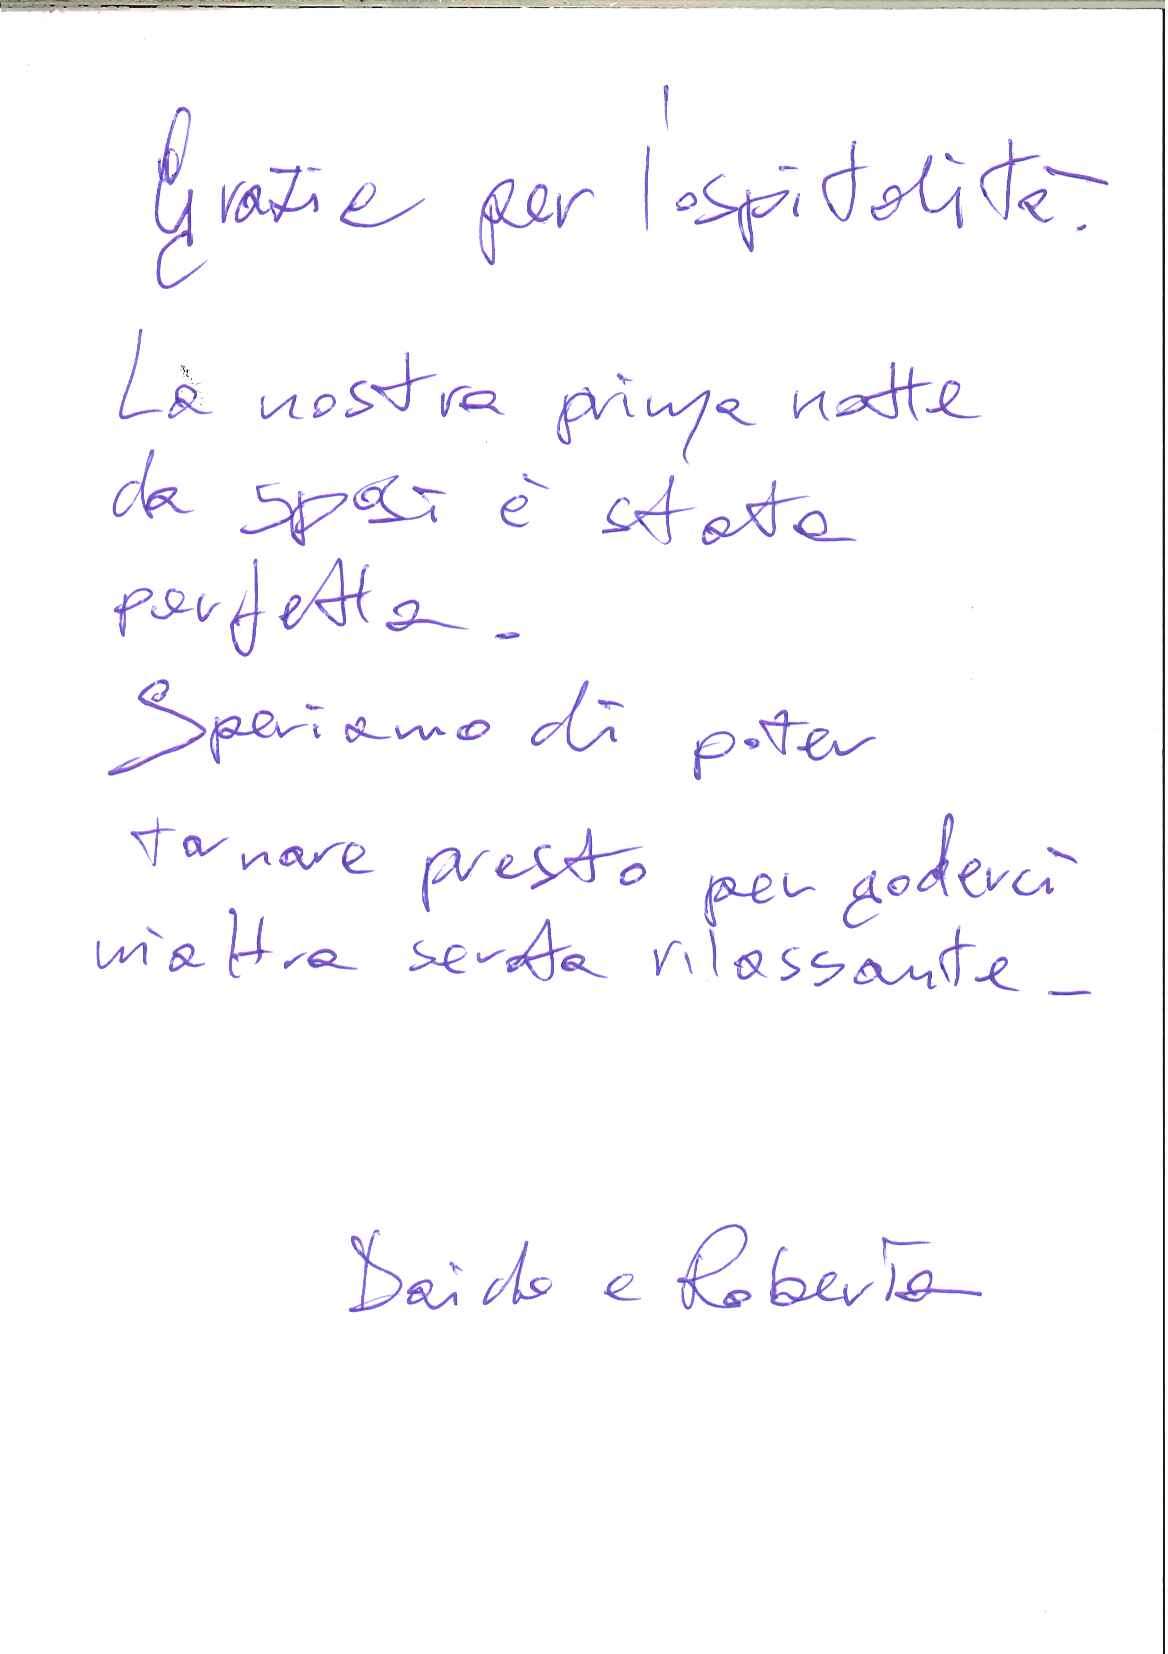 Grazie per l'ospitalità.
La nostra prima notte
da sposi è stata
perfetta.
Speriamo di poter
tornare presto per goderci
un'altra serata rilassante_
e Roberta